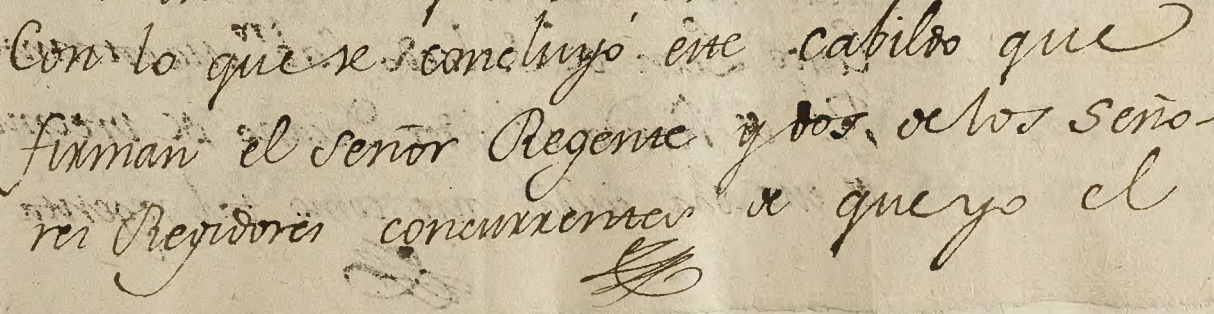 Con lo que se concluyó este cabildo que
firman el señor Regente y dos de los seño-
res Regidores concurrentes de que yo el